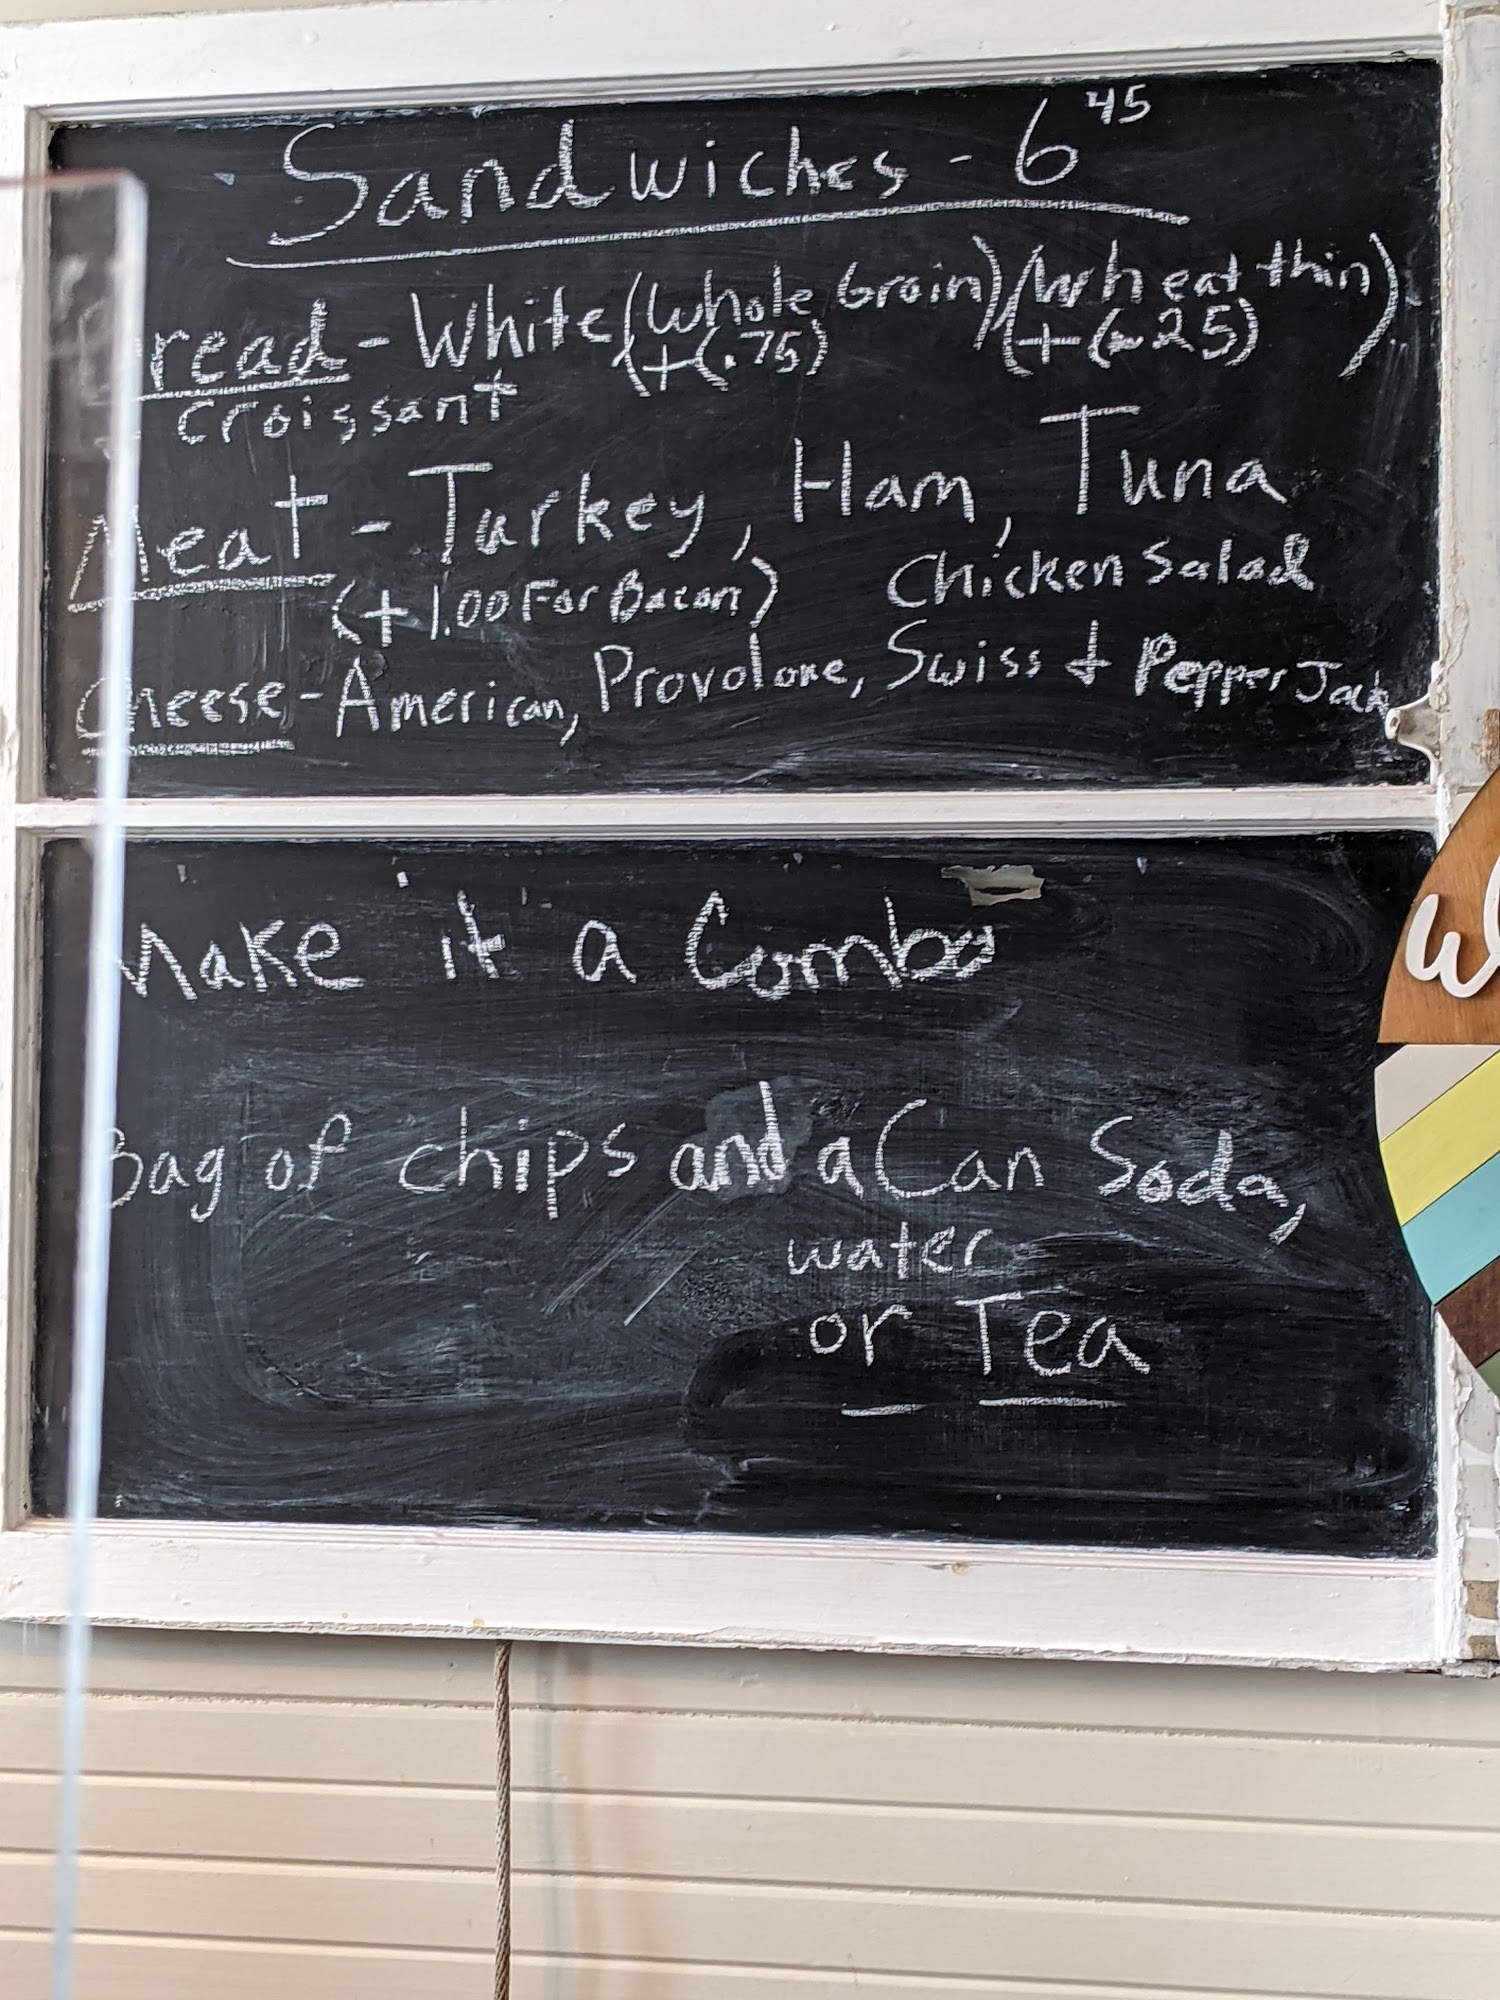 Sandwiches - 6 45
read - White (Whole Grain) (Wheat thin)
(+(.75) (+(.25)
croissant
Meat - Turkey, Ham, Tuna
(+1.00 For Bacon) Chicken Salad
Cheese - American, Provolone, Swiss + Pepper Jack
Make it a Combo
Bag of chips and a Can Soda,
water
or Tea